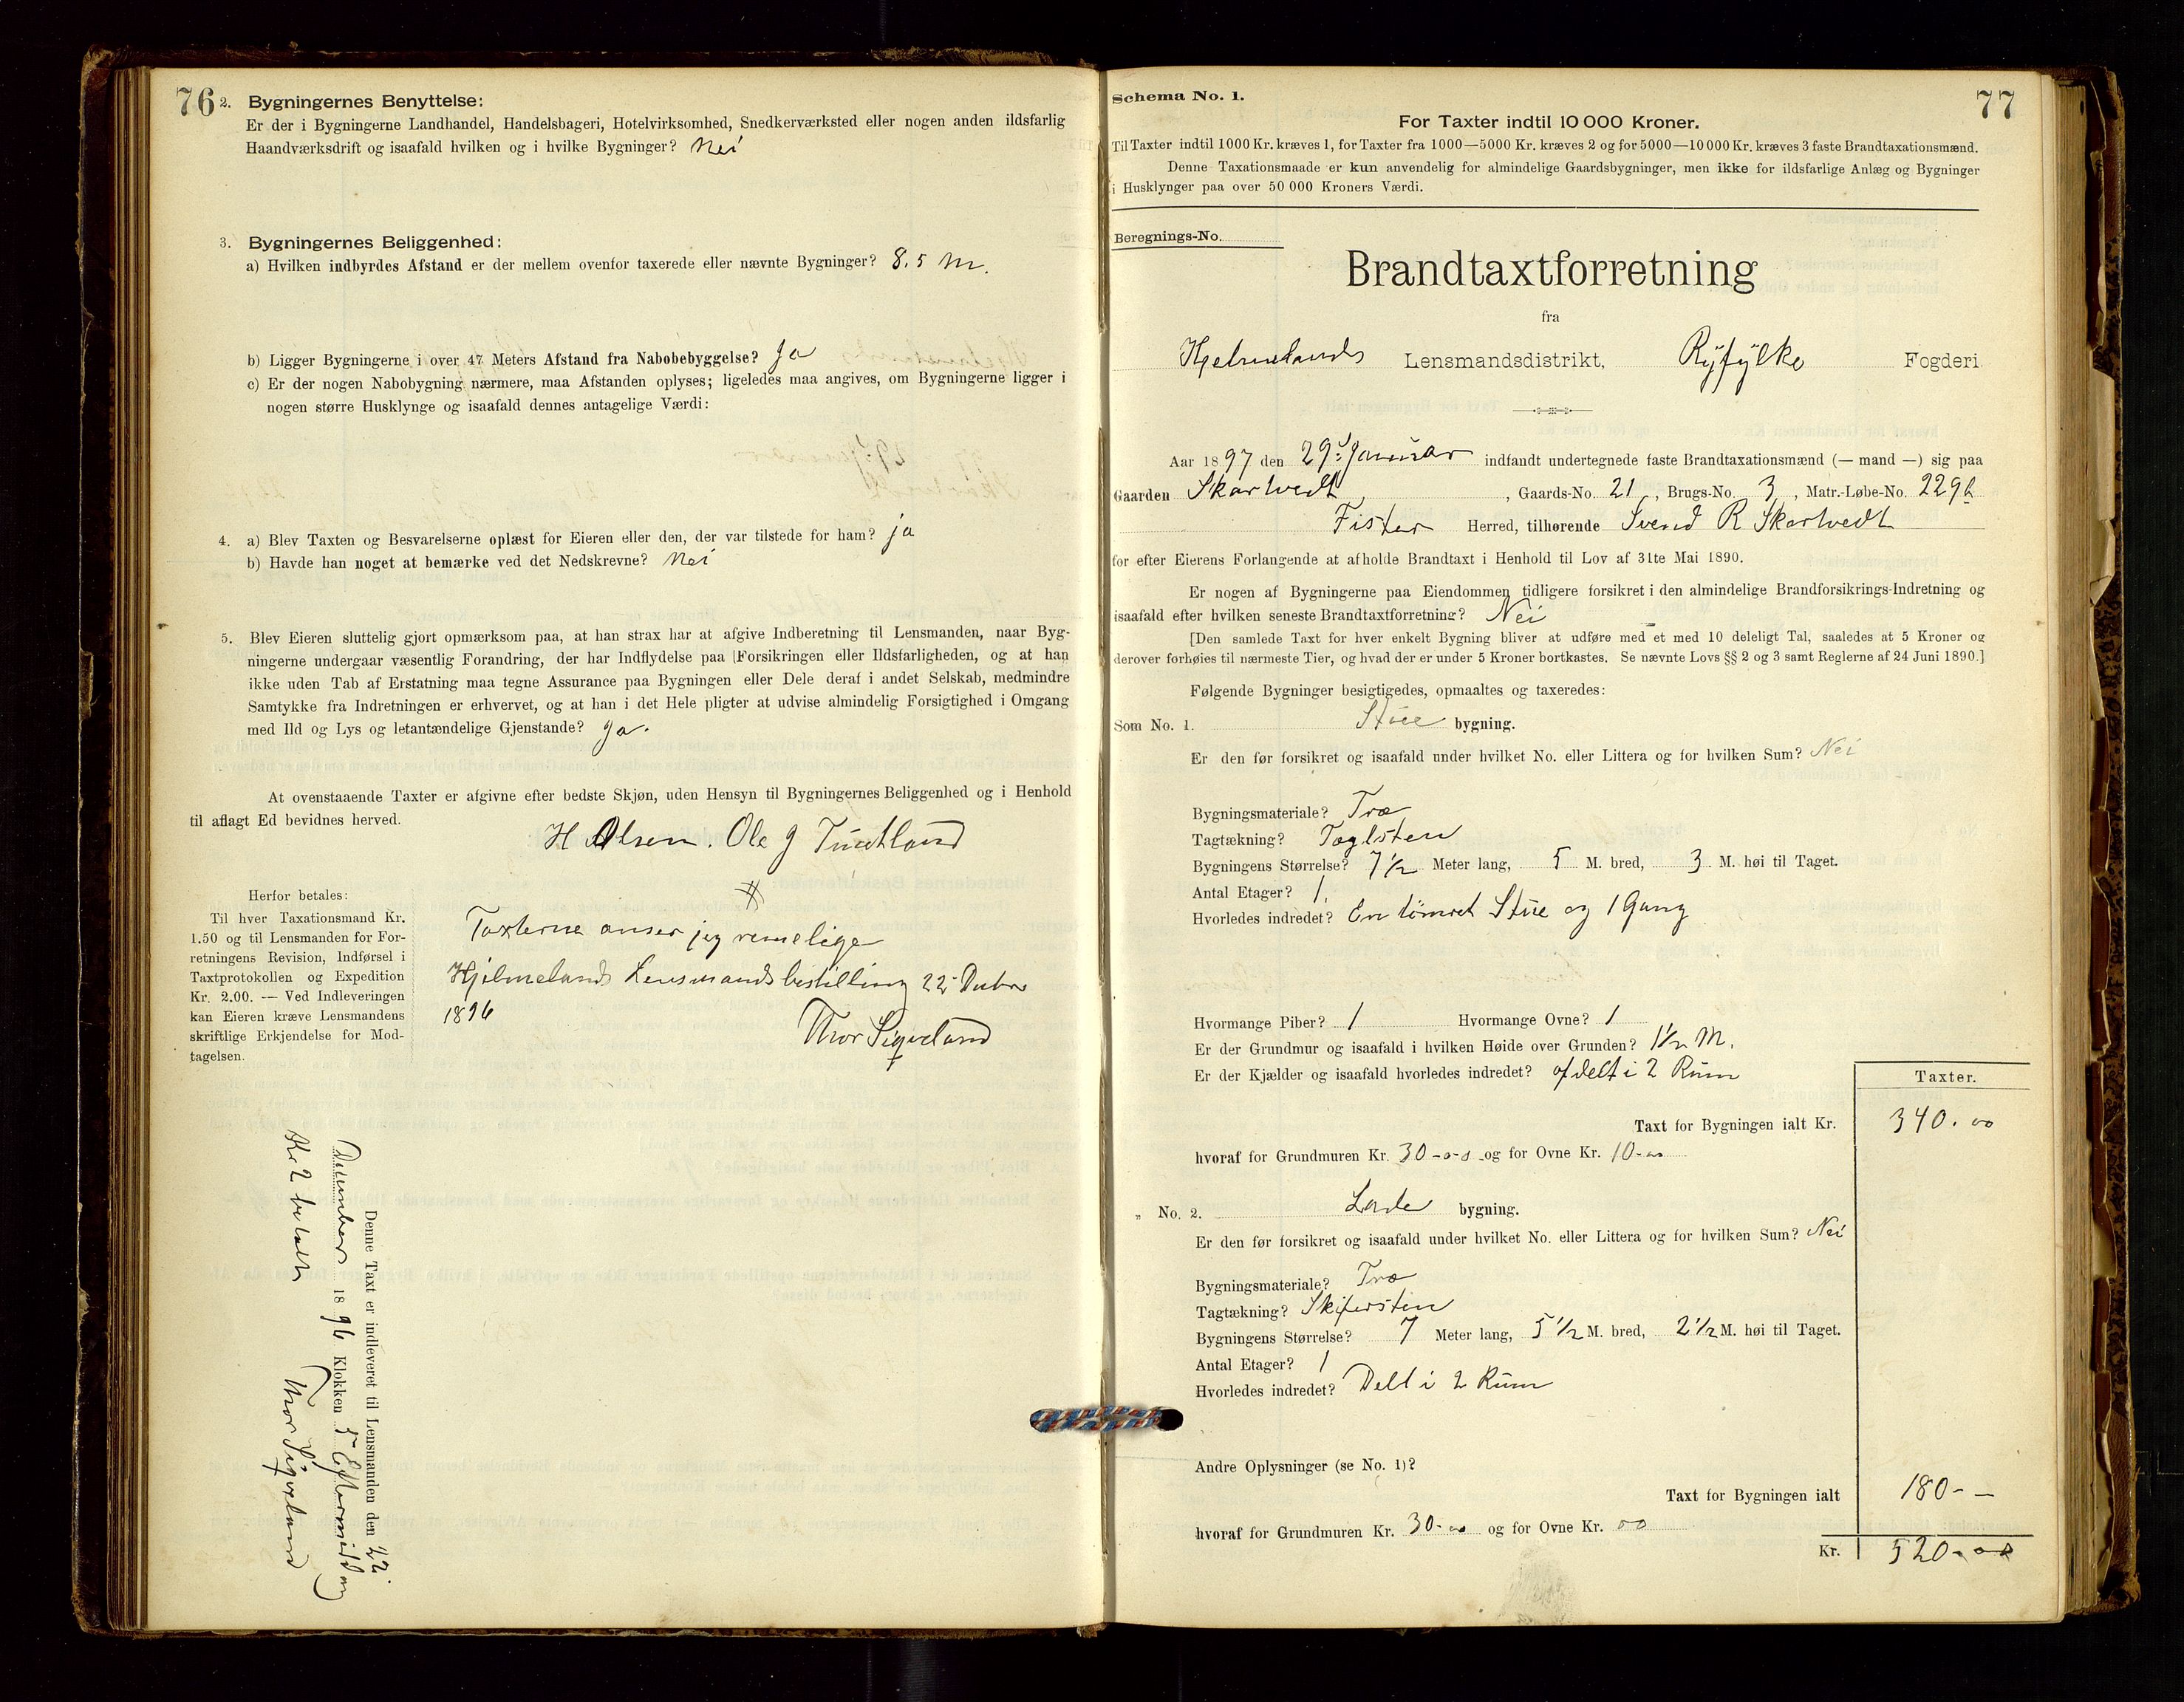 76
2. Bygningernes Benyttelse:
Er der i Bygningerne Landhandel, Handelsbageri, Hotelvirksomhed, Snedkerværksted eller nogen anden ildsfarlig
Haandværksdrift og isaafald hvilken og i hvilke Bygninger? Nei
3. Bygningernes Beliggenhed:
a) Hvilken indbyrdes Afstand er der mellem ovenfor taxerede eller nævnte Bygninger? 8,5 M.
b) Ligger Bygningerne i over 47 Meters Afstand fra Nabobebyggelse? Ja
c) Er der nogen Nabobygning nærmere, maa Afstanden oplyses; ligeledes maa angives, om Bygningerne ligger i
nogen større Husklynge og isaafald dennes antagelige Værdi:
4. a) Blev Taxten og Besvarelserne oplæst for Eieren eller den, der var tilstede for ham? ja
b) Havde han noget at bemærke ved det Nedskrevne? Nei
5. Blev Eieren sluttelig gjort opmærksom paa, at han strax har at afgive Indberetning til Lensmanden, naar Byg-
ningerne undergaar væsentlig Forandring, der har Indflydelse paa Forsikringen eller Ildsfarligheden, og at han
ikke uden Tab af Erstatning maa tegne Assurance paa Bygningen eller Dele deraf i andet Selskab, medmindre
Samtykke fra Indretningen er erhvervet, og at han i det Hele pligter at udvise almindelig Forsigtighed i Omgang
med Ild og Lys og letantændelige Gjenstande? Ja.
At ovenstaaende Taxter er afgivne efter bedste Skjøn, uden Hensyn til Bygningernes Beliggenhed og i Henhold
til aflagt Ed bevidnes herved.
H Olsen. Ole J Tuntland
Herfor betales:
Til hver Taxationsmand Kr.
1.50 og til Lensmanden for For-
retningens Revision, Indførsel i
Taxtprotokollen og Expedition
Kr. 2.00. — Ved Indleveringen
kan Eieren kræve Lensmandens
skriftlige Erkjendelse for Mod-
tagelsen.
Taxterne anser jeg rimelige
Hjelmelands Lensmandsbestilling 22 Decbr
1896
Thor Sigveland
Denne Taxt er indleveret til Lensmanden den 22
December 1896 Klokken 5 Eftermiddag
Kr 2 betalt Thor Sigveland
77
Schema No. 1.
For Taxter indtil 10 000 Kroner.
Til Taxter indtil 1000 Kr. kræves 1, for Taxter fra 1000—5000 Kr. kræves 2 og for 5000—10 000 Kr. kræves 3 faste Brandtaxationsmænd.
Denne Taxationsmaade er kun anvendelig for almindelige Gaardsbygninger, men ikke for ildsfarlige Anlæg og Bygninger
i Husklynger paa over 50 000 Kroners Værdi.
Beregnings-No.
Brandtaxtforretning
fra
Hjelmelands Lensmandsdistrikt, Ryfylke Fogderi
Aar 1897 den 29. Januar indfandt undertegnede faste Brandtaxationsmænd (— mand —) sig paa
Gaarden Skartvedt, Gaards-No. 21, Brugs-No. 3, Matr.-Løbe-No. 229b
Fister Herred, tilhørende Svend R Skartvedt
for efter Eierens Forlangende at afholde Brandtaxt i Henhold til Lov af 31te Mai 1890.
Er nogen af Bygningerne paa Eiendommen tidligere forsikret i den almindelige Brandforsikrings-Indretning og
isaafald efter hvilken seneste Brandtaxtforretning? Nei
[Den samlede Taxt for hver enkelt Bygning bliver at udføre med et med 10 deleligt Tal, saaledes at 5 Kroner og
derover forhøies til nærmeste Tier, og hvad der er under 5 Kroner bortkastes. Se nævnte Lovs §§ 2 og 3 samt Reglerne af 24 Juni 1890.]
Følgende Bygninger besigtigedes, opmaaltes og taxeredes:
Som No. 1. Stue bygning.
Er den før forsikret og isaafald under hvilket No. eller Littera og for hvilken Sum? Nei
Bygningsmateriale? Træ
Tagtækning? Taglsten
Bygningens Størrelse? 7 1/2 Meter lang, 5 M. bred, 3 M. høi til Taget.
Antal Etager? 1.
Hvorledes indredet? En tømret Stue og 1 Gang
Hvormange Piber? 1 Hvormange Ovne? 1
Er der Grundmur og isaafald i hvilken Høide over Grunden? 1 1/2 M.
Er der Kjælder og isaafald hvorledes indredet? afdelt i 2 Rum
Taxter.
Taxt for Bygningen ialt Kr. 340.00
hvoraf for Grundmuren Kr. 30-00 og for Ovne Kr. 10-00
„ No. 2. Lade bygning.
Er den før forsikret og isaafald under hvilket No. eller Littera og for hvilken Sum? Nei
Bygningsmateriale? Træ
Tagtækning? Skifersten
Bygningens Størrelse? 7 Meter lang, 5 1/2 M. bred, 2 1/2 M. høi til Taget.
Antal Etager? 1
Hvorledes indredet? Delt i 2 Rum
Andre Oplysninger (se No. 1)?
Taxt for Bygningen ialt 180- —
hvoraf for Grundmuren Kr. 30-00 og for Ovne Kr. 00
Kr. 520-00